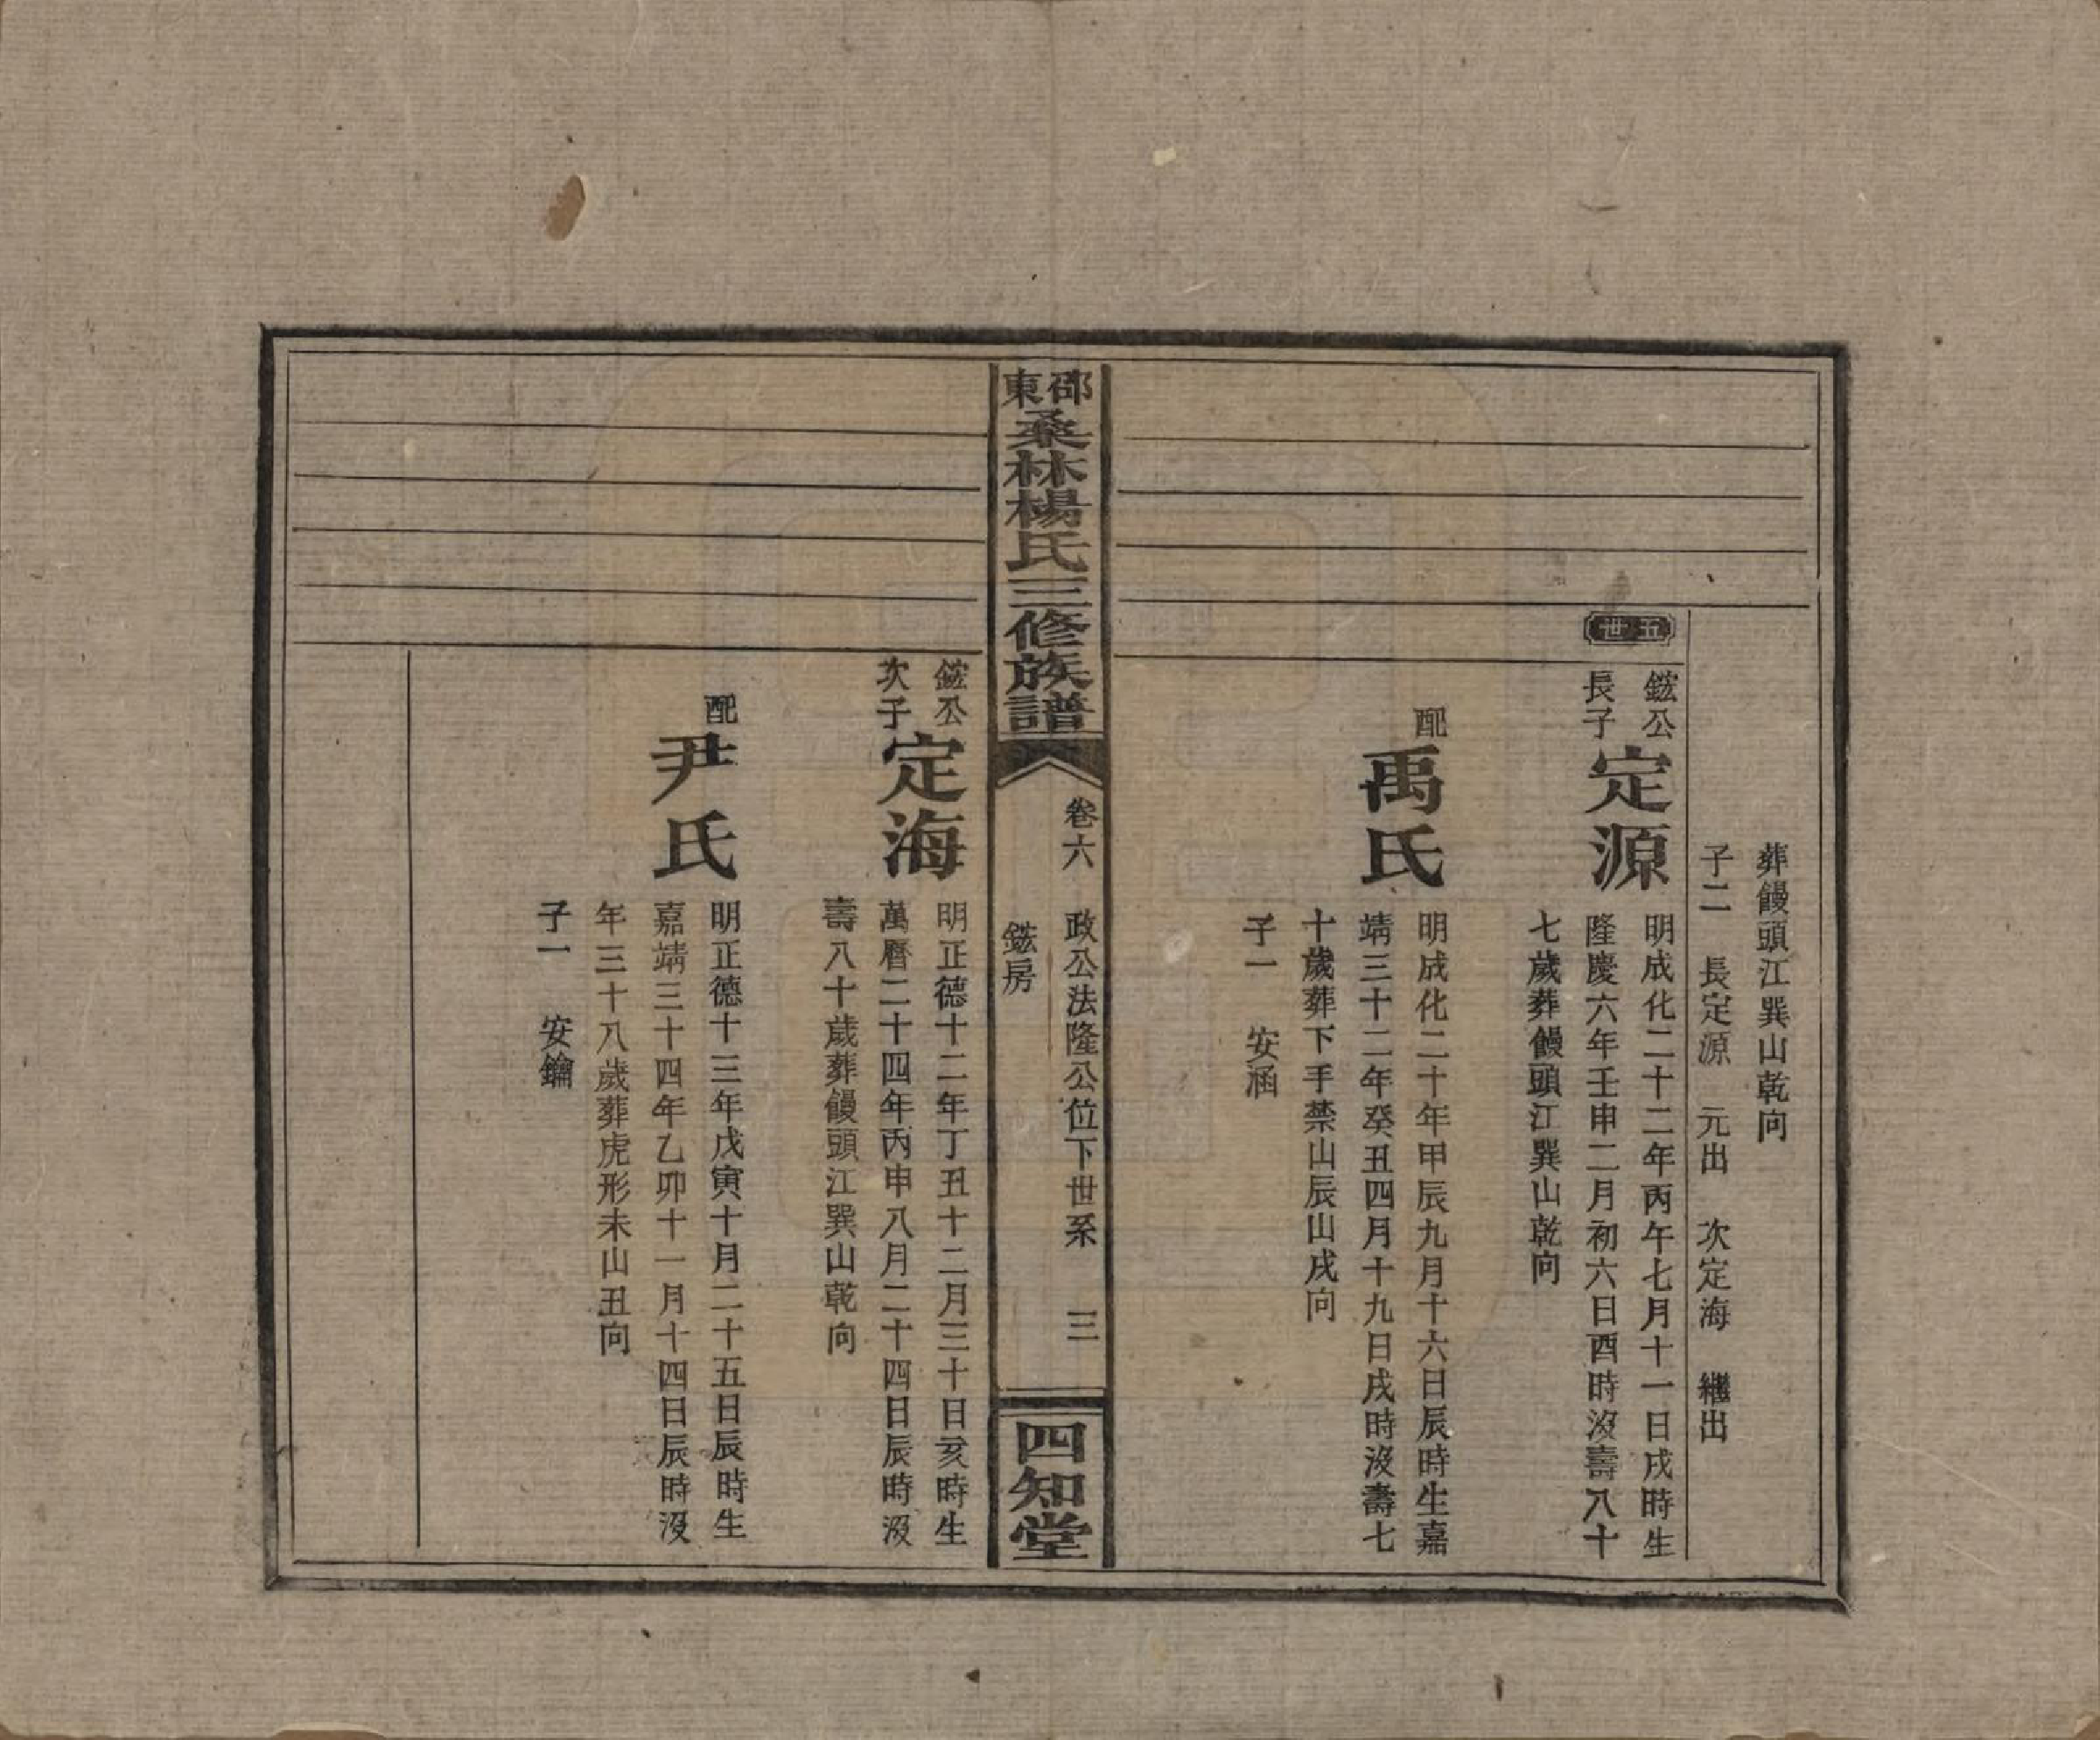 葬饅頭江巽山乾向
子二　長定源　元出　次定海　繼出
五世
鋐公
長子
定源
明成化二十二年丙午七月十一日戌時生
隆慶六年壬申二月初六日酉時沒壽八十
七歲葬饅頭江巽山乾向
配
禹氏
明成化二十年甲辰九月十六日辰時生嘉
靖三十二年癸丑四月十九日戌時沒壽七
十歲葬下手禁山辰山戌向
子一　安涵
邵東桑林楊氏三修族譜
卷六　政公法隆公位下世系　三
鋐房
四知堂
鋐公
次子
定海
明正德十二年丁丑十二月三十日亥時生
萬曆二十四年丙申八月二十四日辰時沒
壽八十歲葬饅頭江巽山乾向
配
尹氏
明正德十三年戊寅十月二十五日辰時生
嘉靖三十四年乙卯十一月十四日辰時沒
年三十八歲葬虎形未山丑向
子一　安鑰